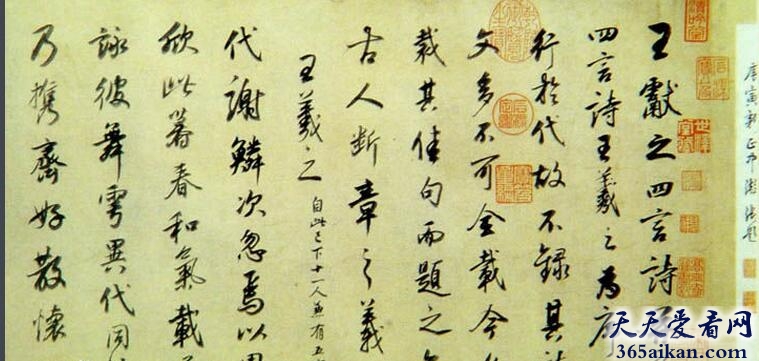 王獻之四言詩
四言詩王羲之為
行於代故不錄其
文多不可全載今
裁其佳句而題之
古人斷章之義
王羲之 自此已下十一人並有五
代謝鱗次忽焉以
欣此暮春和氣載
詠彼舞雩異代同
乃攜齊好散懷
天天爱看网
365aikan.com